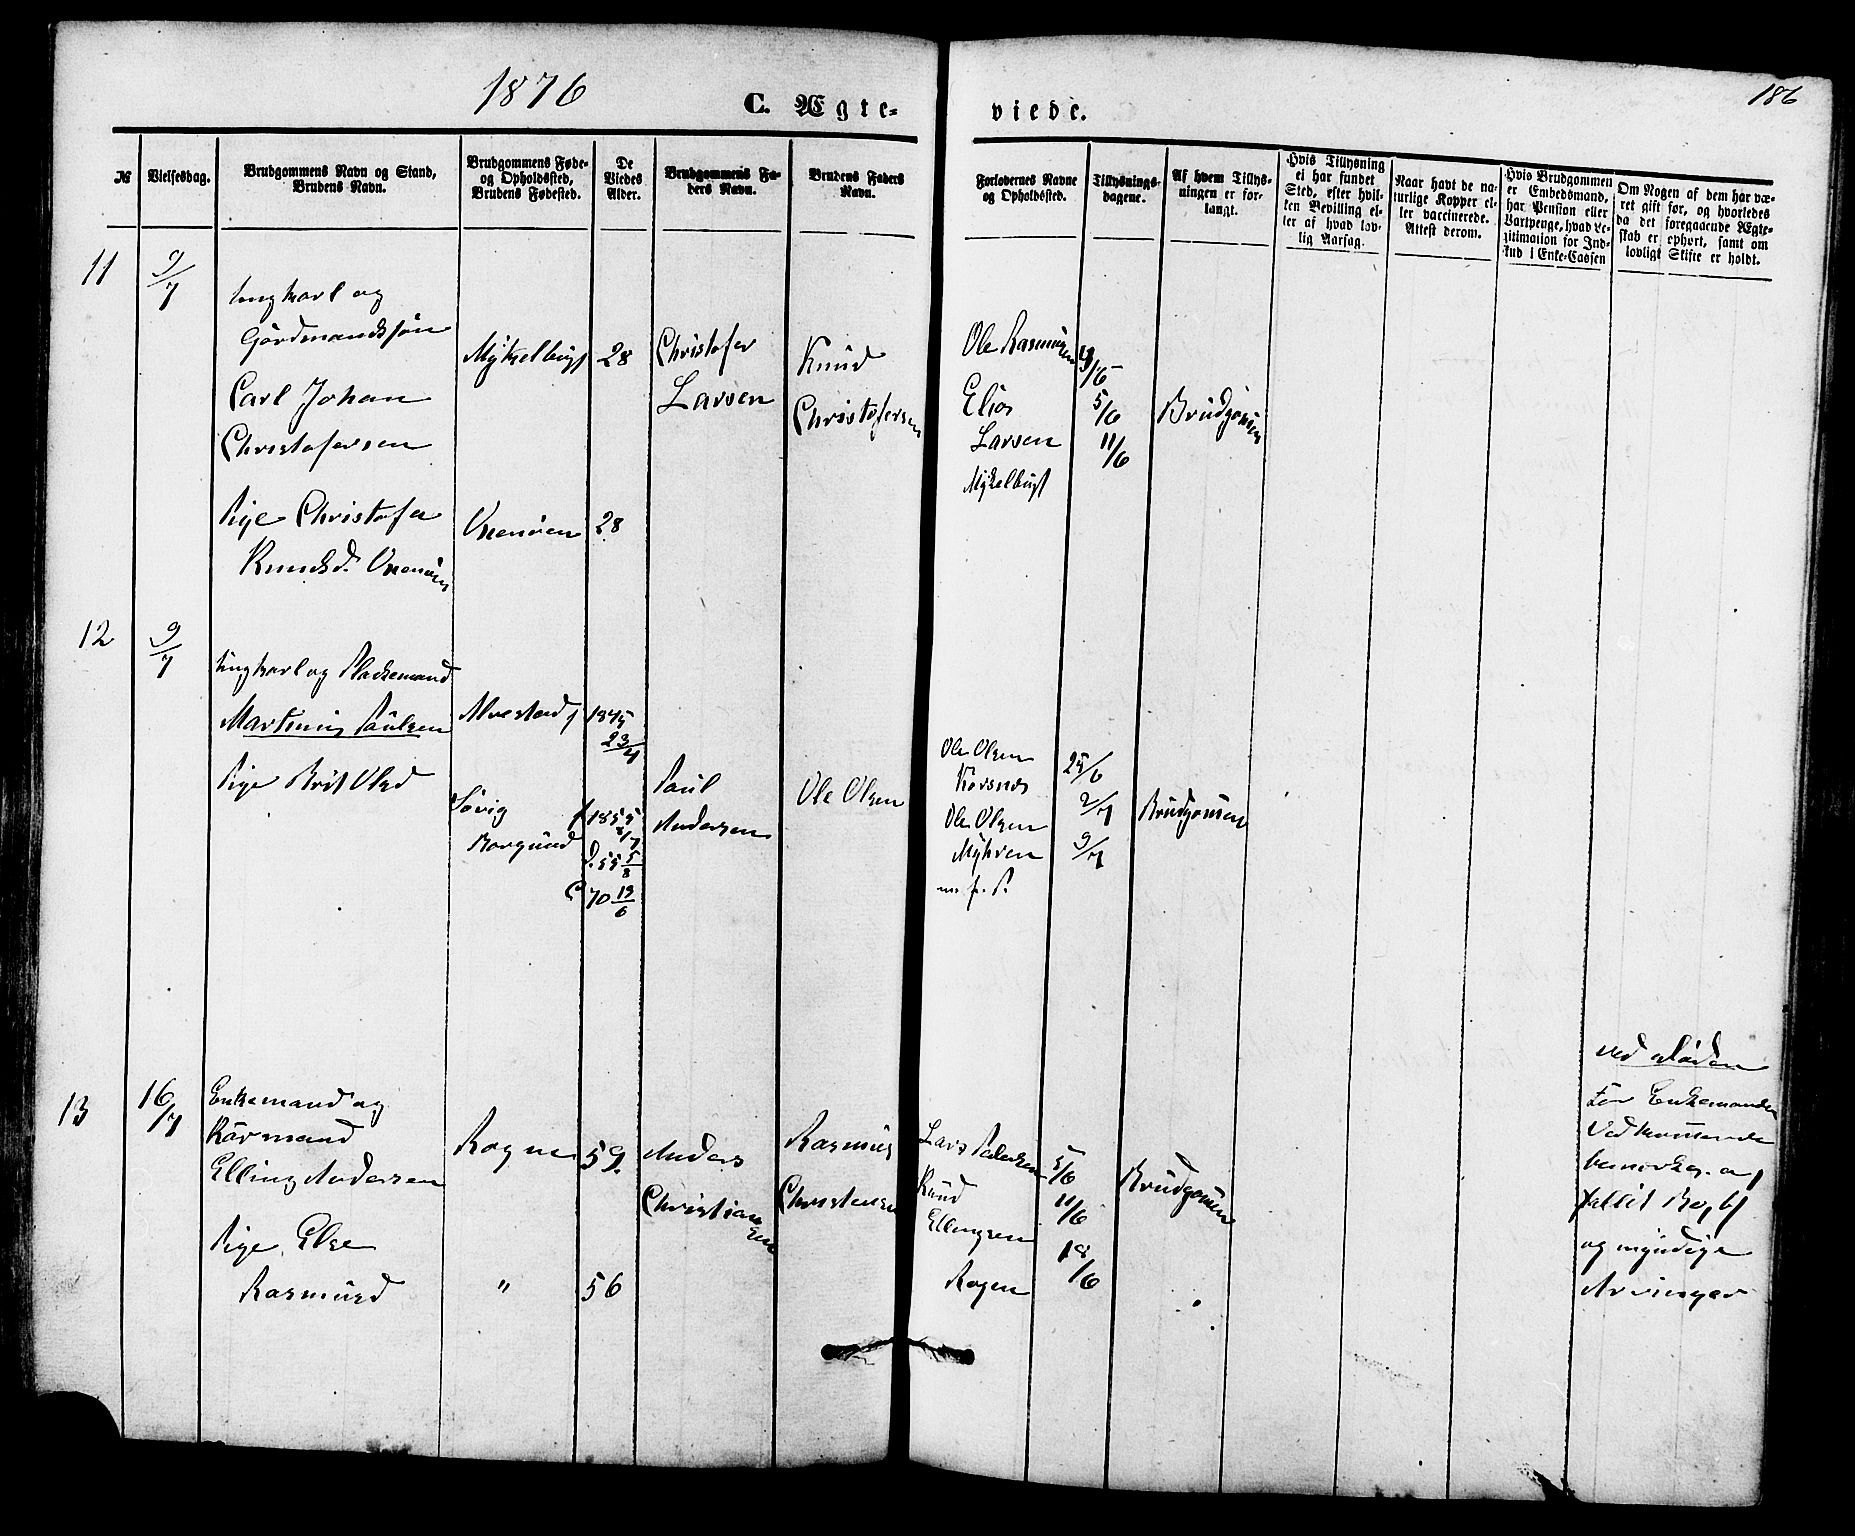 1876
C. Ægte-
viede.
186
№
Vielsesdag.
Brudgommens Navn og Stand,
Brudens Navn.
Brudgommens Føde-
og Opholdssted,
Brudens Fødested.
De
Viedes
Alder.
Brudgommens Fa-
ders Navn.
Brudens Faders
Navn.
Forlovernes Navne
og Opholdssted.
Tillysnings-
dagene.
Af hvem Tillys-
ningen er for-
langt.
Hvis Tillysning
ei har fundet
Sted, efter hvil-
ken Bevilling el-
ler af hvad lov-
lig Aarsag.
Naar havt de na-
turlige Kopper el-
ler vaccinerede.
Attest derom.
Hvis Brudgommen
er Embedsmand,
har Pension eller
Vartpenge, hvad Le-
gitimation for Ind-
skud i Enke-Cassen
Om Nogen af dem har væ-
ret gift før, og hvorledes
da det foregaaende Ægte-
skab er ophørt, samt om
lovligt Skifte er holdt.
11
9/7
Ungkarl og
Gårdmandssøn
Carl Johan
Christofersen
Pige Christofa
Knudsd. Onenöen
Myklelbugt
Onenöen
28
28
Christofer
Larsen
Knud
Christofersen
Ole Rasmusen
Elias
Larsen
Myklelbugt
5/6
11/6
Brudgomen
12
9/7
Ungkarl og Pladsemand
Martinus Paulsen
Pige Brit Olsd
Alvestad
Sövig
Borgund
1845
23/4
1855
D. 55 5/8
C 70 19/6
Paul
Andersen
Ole Olsen
Ole Olsen
Korsnes
Ole Olsen
Myhren
m. f. P.
25/6
2/7
9/7
Brudgomen
13
16/7
Enkemand og
Kårmand
Elling Andersen
Pige Else
Rasmusd
Rogne
"
59.
56
Anders
Christiansen
Rasmus
Christensen
Lars Pedersen
Knud
Ellingsen
Rogen
5/6
11/6
18/6
Brudgomen
ved Døden
For Enkemanden
Vedkommende
og myndige
Arvinger